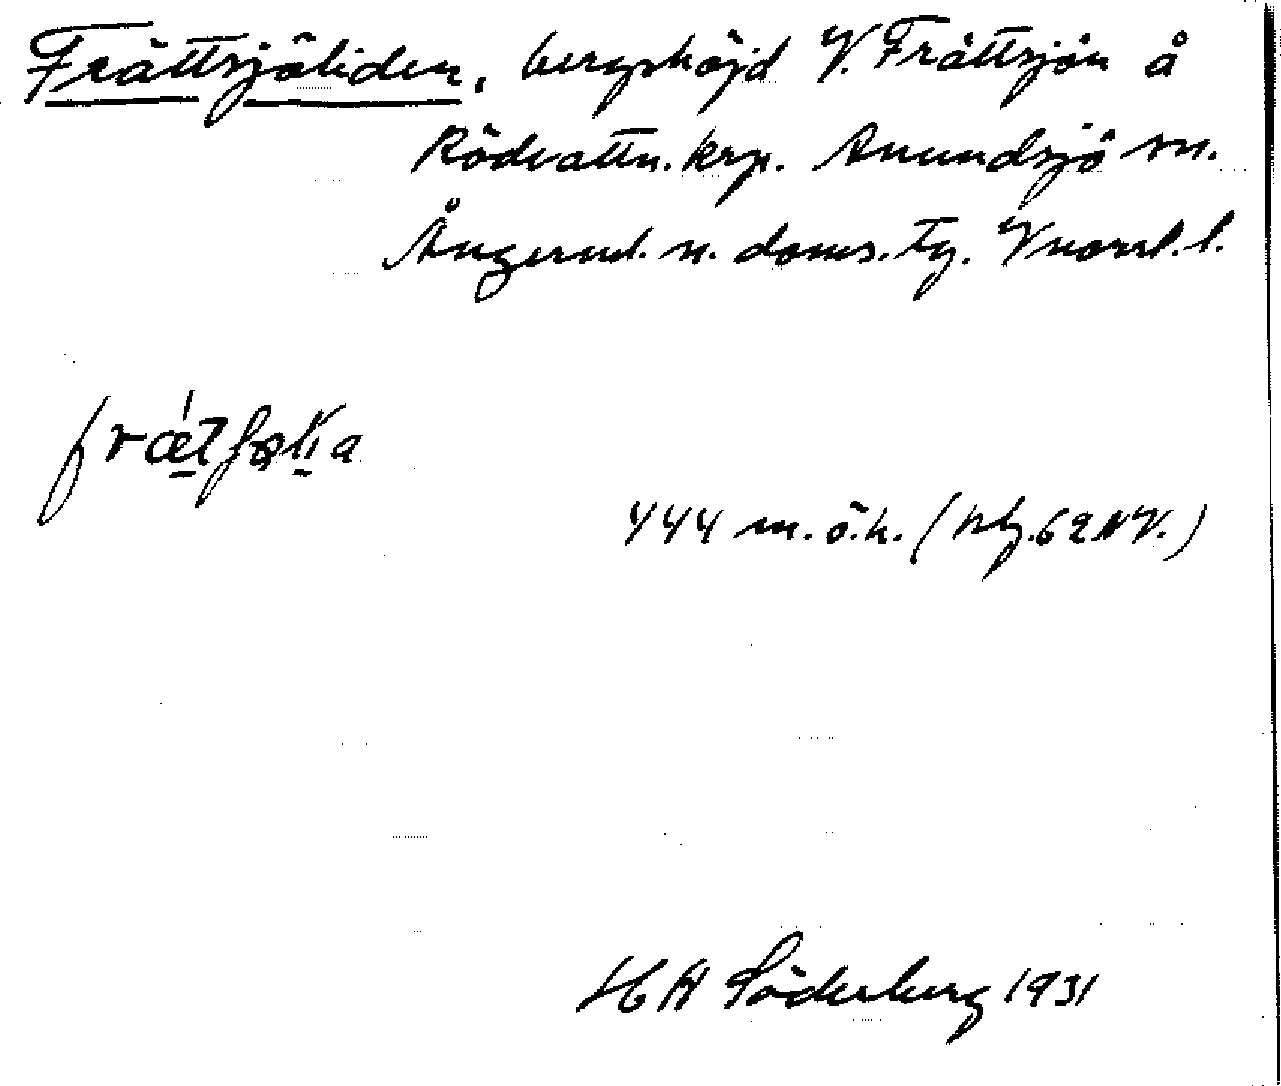 Frättsjöliden, bergshöjd V. Frättsjön å
Rödvattn. krp. Anundsjö sn.
Ångerml. n. doms. tg. Vnorrl. l.
444 m. ö. h. (blg. 62 NV.)
H H Söderberg 1931